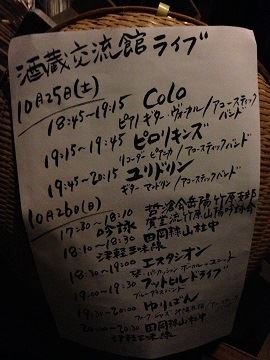 酒蔵交流館ライブ
10月25日(土)
18:45~19:15 Colo
ピアノ ギター ヴォーカル/アコースティックバンド
19:15~19:45 ピロリキンズ
リコーダー ピアニカ /アコースティックバンド
19:45~20:15 ユリドリン
ギター マンドリン /アコースティックバンド
10月26日(日)
17:30~18:10 吟詠
18:10~18:30 田岡 社中
津軽三味線
18:30~19:00 エスタシオン
19:00~19:30 フットヒルドライブ
ブルーグラスバンド
19:30~20:00 ゆりぱん
20:00~20:30 田岡 社中
津軽三味線